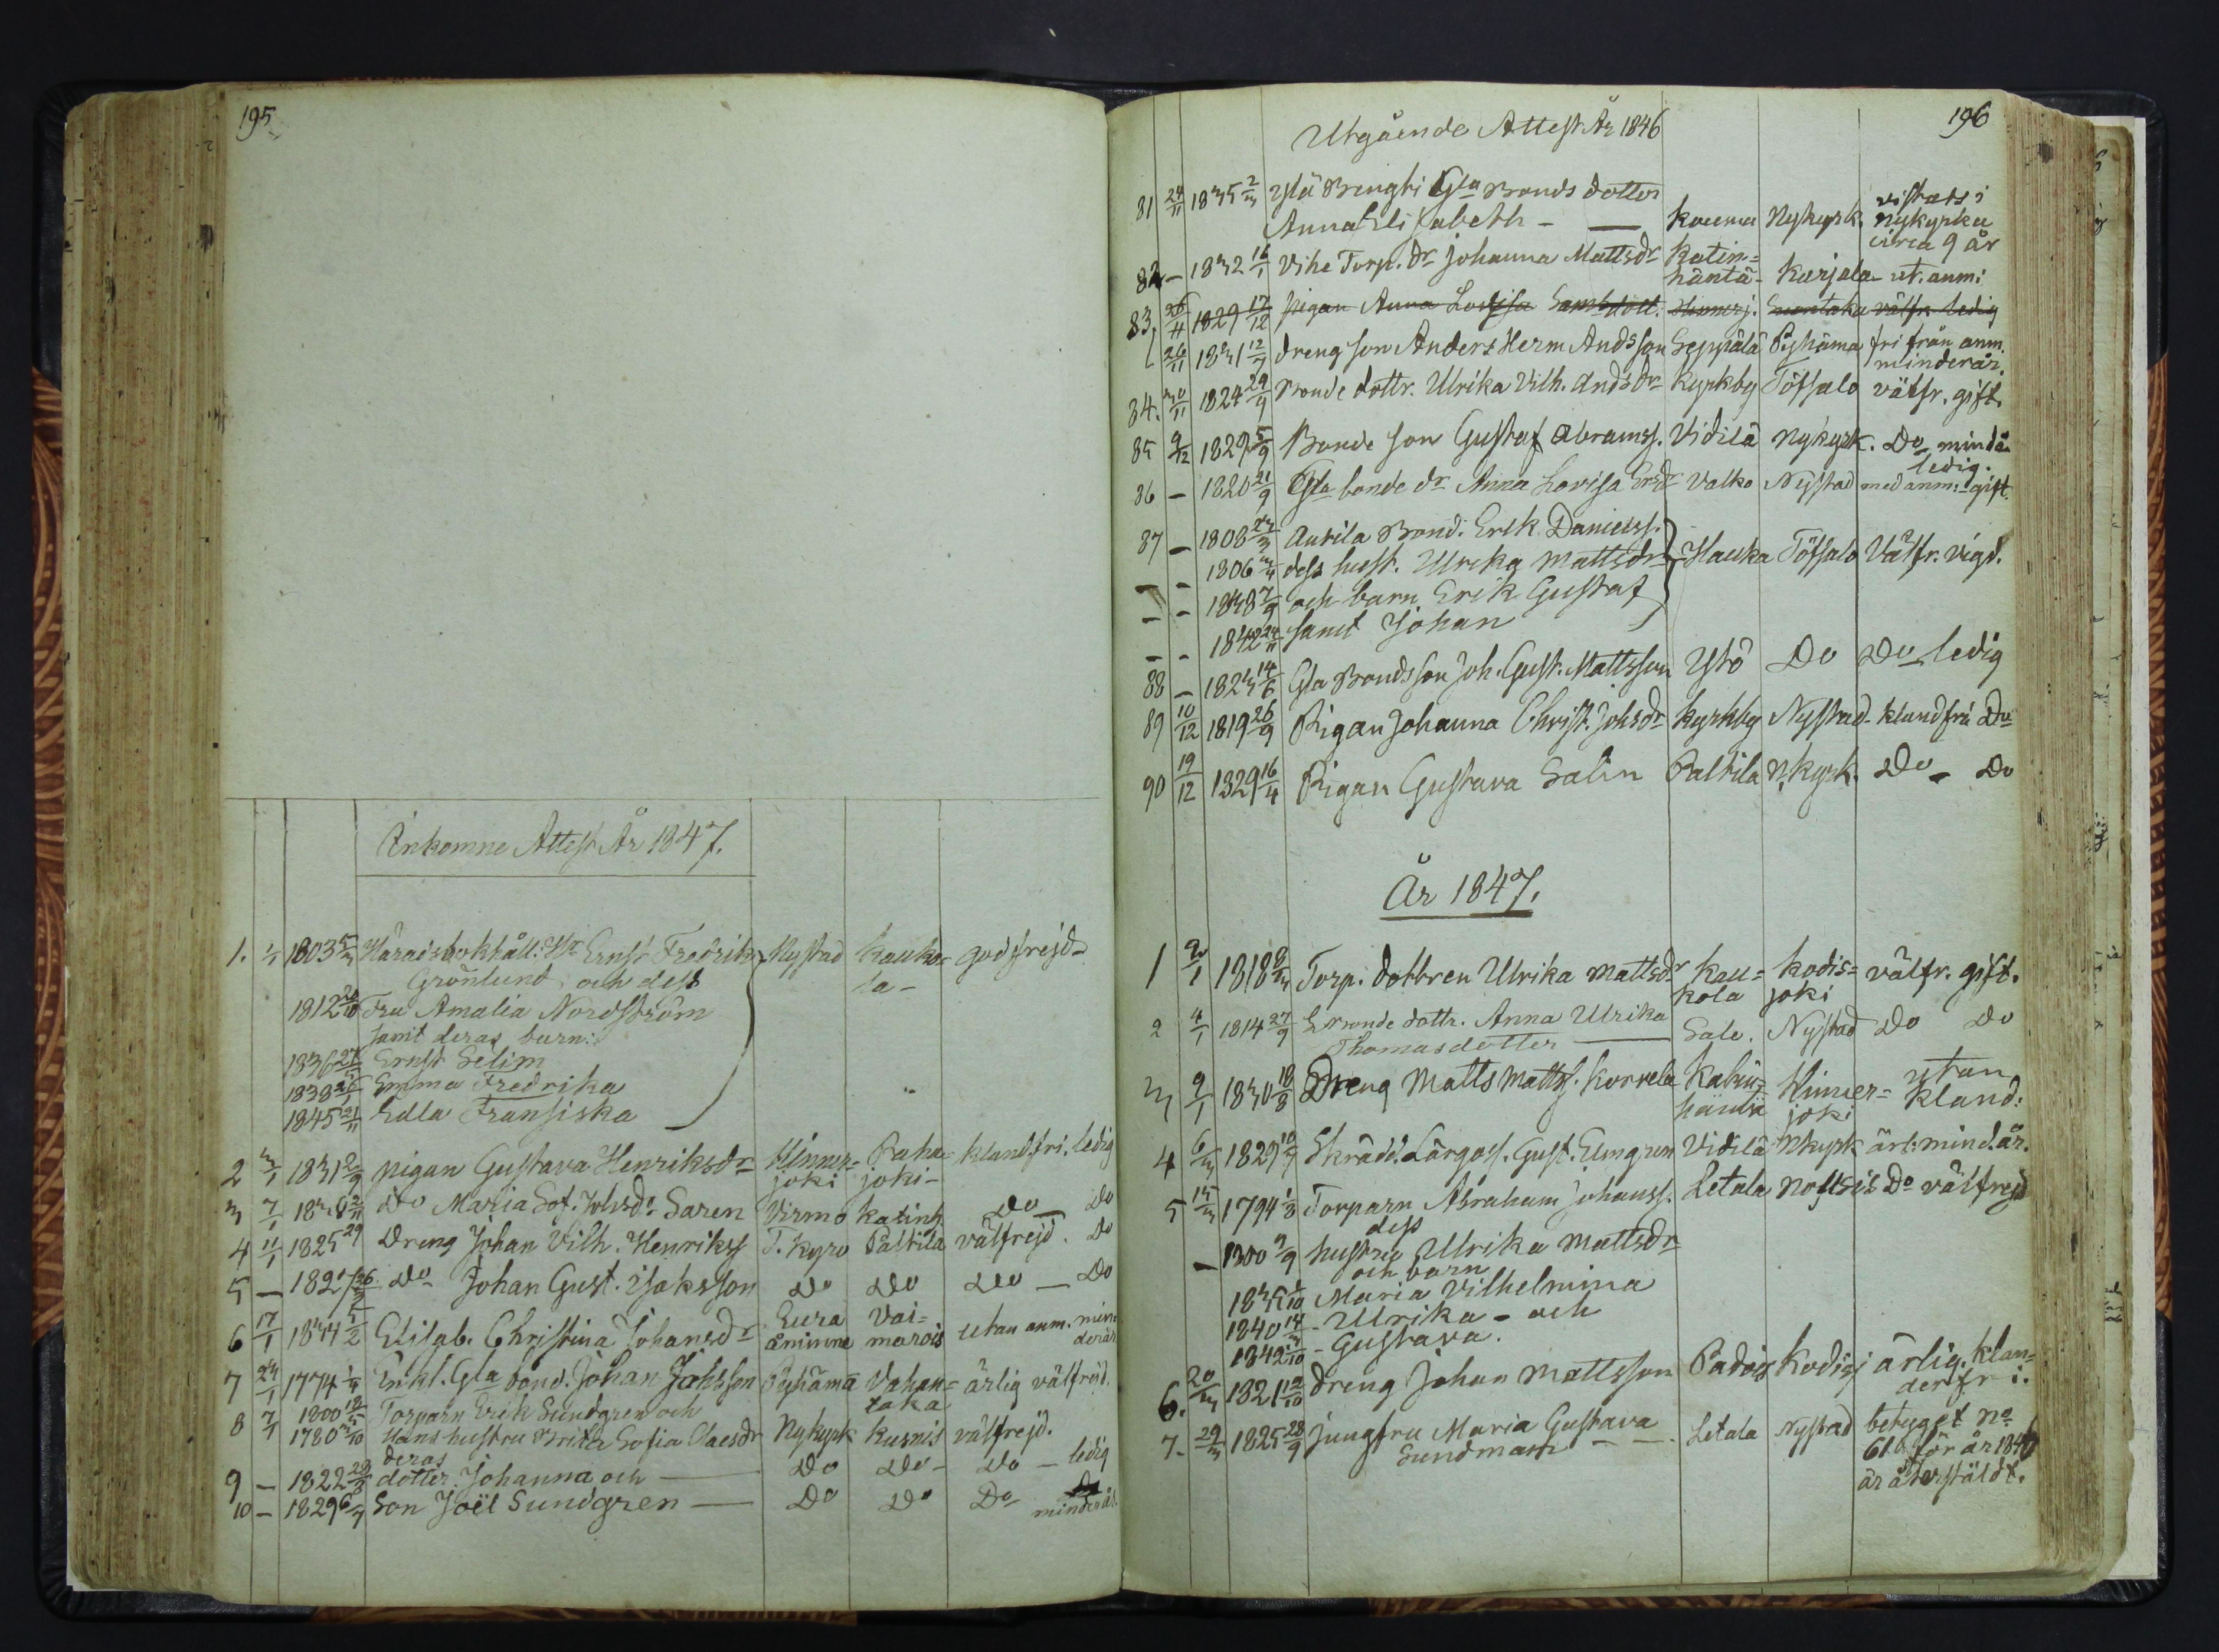 195
Inkomne Attest År 1847.
1. 1/1 1803 5/3 Häradsbokhåll. Hr Ernst Fredrik Nystad Kauko= god frejd
Grönlund och dess la-
1812 20/10 Fru Amalia Nordström
samt deras barn:
1836 24/5 Ernst Selim
1838 26/1 Emma Fredrika
1845 21/11 Edla Fransiska
2 3/1 1831 2/9 pigan Gustava Henriksdr Hinner= Paha= kland.fri. ledig
joki joki-
3 7/1 Do Maria Sof. Johsdr Saren Virmo Katinh Do Do
4 11/1 1825 29 Dreng Johan Vilh. Henrikss T. Kyro Paltila välfrejd. Do
5 — 1827 26/3 Do Johan Gust. Isaksson Do Do Do — Do
6 17/1 1844 5/2 Elisab. Christina Johansdr Eura Vai= utan anm. min
åminne marois derår
7 24/1 1774 1/4 Enkl. Gla bond. Johan Johsson Pyhäma Vahan= ärlig välfrejd.
taka
8 7/1 1800 18/5 Torparn Erik Sundgren och
1780 3/10 Hans hustru Brita Sofia Claesdr Nykyrk Kusnis välfrejd.
deras
9 — 1822 28/3 dotter Johanna och — Do Do- Do — ledig
10 — 1829 6/4 Son Joël Sundgren — Do Do Do
minderår.
196
Utgående Attest År 1846
81 24/11 1835 2/3 Ylä Brenghi Gla Bonds dotter vistats i
Anna Elisabeth — — Kauma Nykyrk. nykyrka
circa 9 år
82 — 1832 16/1 Vihe Torp. dr Johanna Mattsdr Katin=
häntä- Karjala ut. anm:
83, 26/11 1829 17/12 pigan Anna Lovisa Samsdott. Hinnerj. Suontaka välfr. ledig
26/11 1831 12/7 dreng son Anders Herm Andsson Seppälä Pyhäma fri från anm.
minderår.
84. 30/11 1824 29/9 Bonde dottr. Ulrika Vilh. Andsdr Kyrkby Töfsalo välfr. gift.
85 9/12 1829 5/9 Bonde son Gustaf Abramss. Vidilä Nykyrk. Do mindår
ledig.
86 — 1820 21/9 Gla bonde dr Anna Lovisa Ersdr Valko Nystad med anm:- gift.
87 — 1808 23/3 Autila Bond. Erik Danielss.
— - 1806 3/4 dess hust. Ulrika Mattsdr Hauka Töfsalo Välfr. vigd.
— - 1838 7/9 och barn Erik Gustaf
— - 1842 24/11 samt Johan
88 — 1823 14/6 Gla Bonds son Joh. Gust. Mattsson Ytö Do Do ledig
89 10/12 1819 26/9 Pigan Johanna Christ. Johsdr Kyrkby Nystad- klandfri Do
90 19/12 1829 16/4 Pigan Gustava Salin Paltila N,kyrk. Do - Do
År 1847.
1 2/1 1818 8/3 Torp. dottren Ulrika Mattsdr Kau= Kodis= välfr. gift.
kola joki
2 4/1 1814 27/9 E Bonde dottr. Anna Ulrika
Thomasdotter — Salo. Nystad Do Do
3 9/1 1830 18/8 Dreng Matts Mattss. Korrela Katin= Hinner= utan
häntä joki kland:
4 6/3 1829 18/7 Skrädd. Lärgoss. Gust. Elmgren Vidilä Nkyrk ärl. mind.år.
5 15/3 1794 1/8 Torparn Abraham Johanss. Letala Nottsis Do välfrejd
dess
— 1800 9/9 hustru Ulrika Mattsdr
och barn
1835 1/10 Maria Vilhelmina
1840 14/3 - Ulrika - och
1842 - Gustava.
6. 20/3 1821 12/10 Dreng Johan Mattsson Padois Kodisj ärlig. klan=
derfri.
7- 29/3 1825 28/9 Jungfru Maria Gustava Letala Nystad betyget No
Sundman — — 61 för år 1846
är återstäldt.